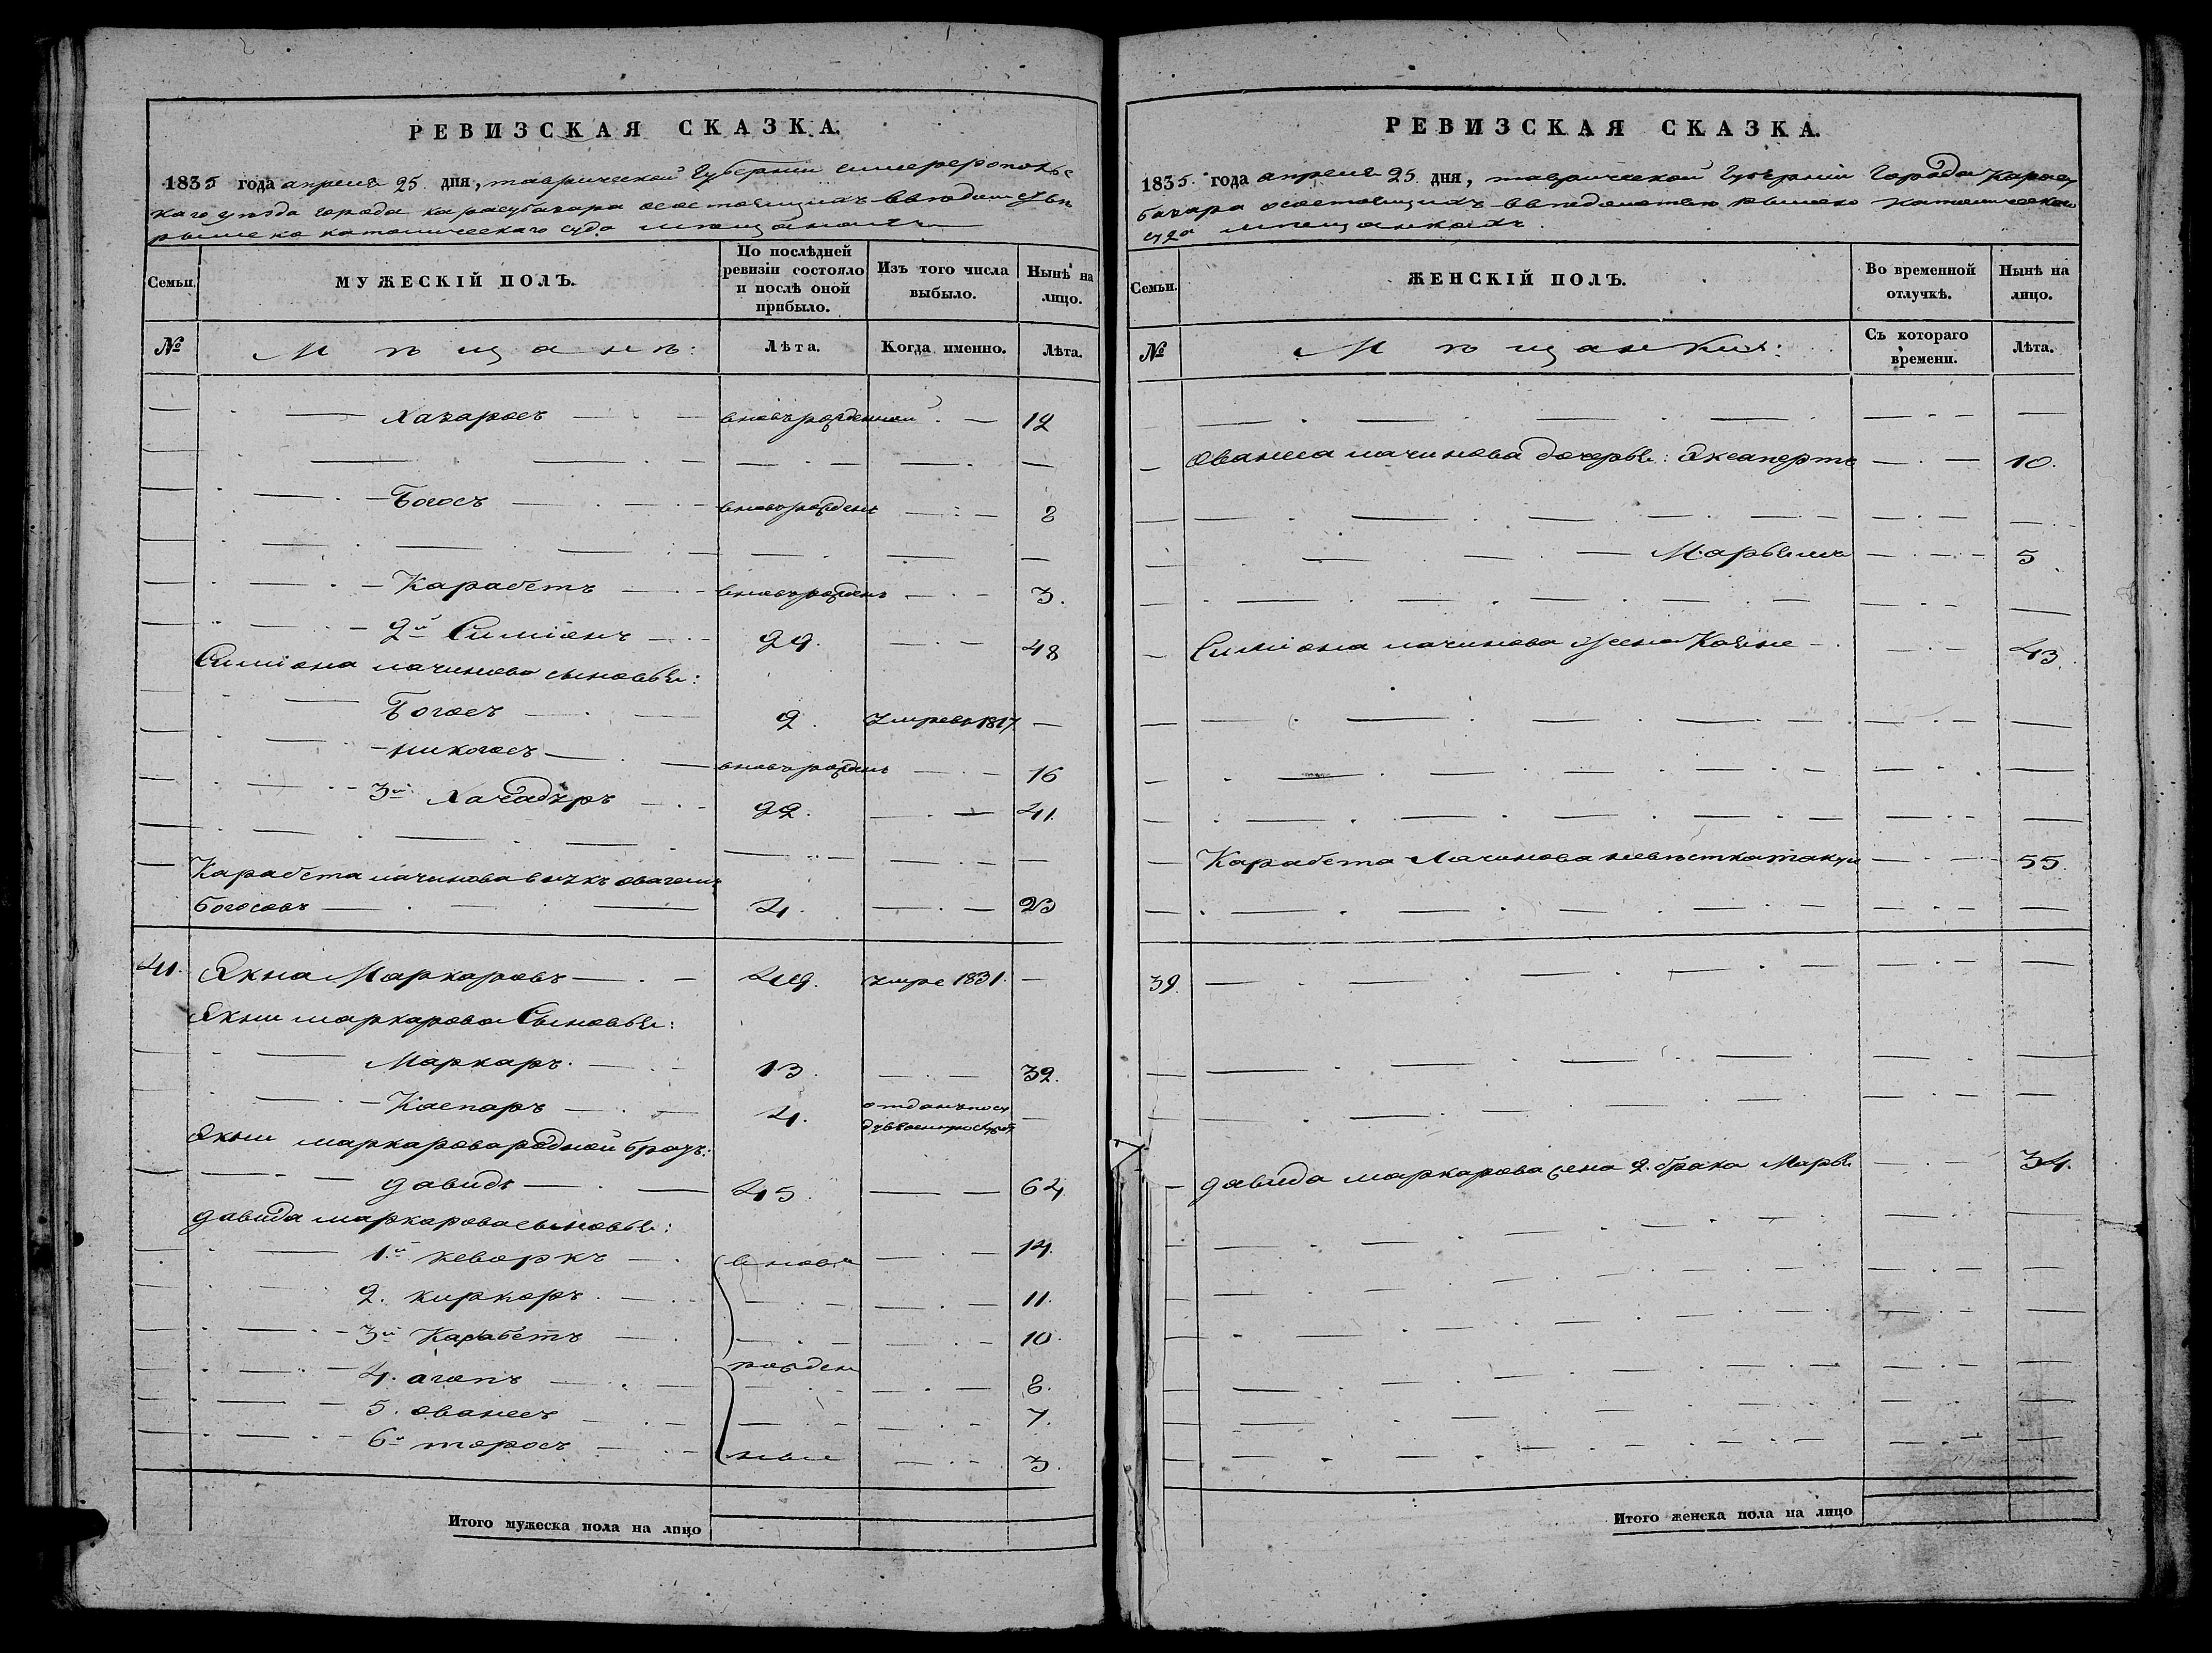 РЕВИЗСКАЯ СКАЗКА.
1835 года апреля 25 дня, таврической Губернии симферопольс
каго уезда города карасубазара осостоящихъ ввѣдомстве
римско католическаго суда мѣщанахъ
Семьи.
МУЖЕСКІЙ ПОЛЪ.
По послѣдней ревизіи состояло и послѣ оной прибыло.
Изъ того числа выбыло.
Нынѣ на лицо.
№
Мѣщанъ:
Лѣта.
Когда именно.
Лѣта.
Лазаросъ вновьрожденной 12
Богосъ вноворожденъ 8
Карабетъ вновьрожденъ 3.
2й Симіонъ 29. 48
Симіона лачинова сыновья:
Богосъ 2. Умре в 1817
никогосъ вновьрожденъ 16
3й Хачадуръ 22. 41.
Карабета лачинова внукъ
богосовъ 4. 23
41. Якша Маркаровъ 49. умре 1831.
Якши маркарова Сыновья:
Маркаръ. 13. 32.
Каспаръ 4. отданъ
Якши маркарова родной братъ:
давидъ 45. 64
давида маркарова сыновья:
1й кеворкъ вновь 14
2. киркоръ. 11.
3й Карабетъ 10.
4. агопъ рожден 8.
5. ованесъ 7.
6й торосъ ные 3.
Итого мужеска пола на лицо
РЕВИЗСКАЯ СКАЗКА.
1835. года апреля 25 дня, таврической Губерніи Города Карасу
базара осостоящихъ ввѣдомстве римско католическаго
суда мѣщанкахъ.
Семьи.
ЖЕНСКІЙ ПОЛЪ.
Во временной отлучкѣ.
Нынѣ на лицо.
№
Мѣщанки:
Съ котораго времени.
Лѣта.
Ованеса лачинова дочерья: 10.
Марьямъ 5
Симіона лачинова жена Каяне 43.
Карабета Лачинова невѣстка 55.
39.
давида маркарова жена 2. брака Марья 34.
Итого женска пола на лицо